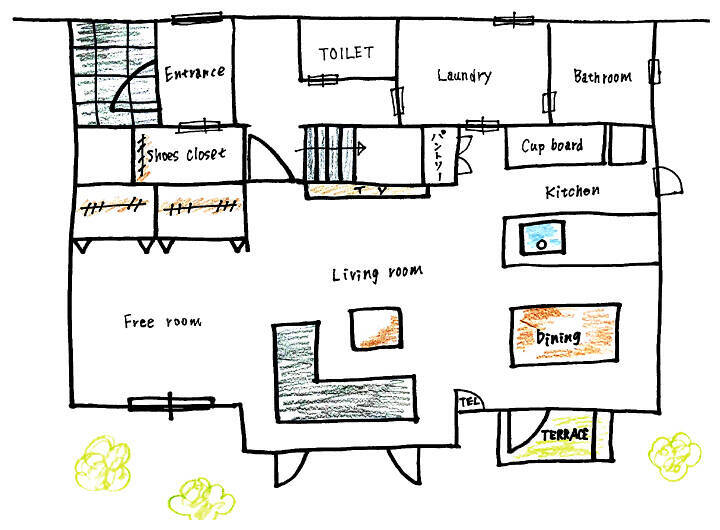 TOILET
Entrance
Laundry
Bathroom
Shoes closet
パントリー
Cup board
Kitchen
TV
Living room
Free room
Dining
TEL
TERRACE